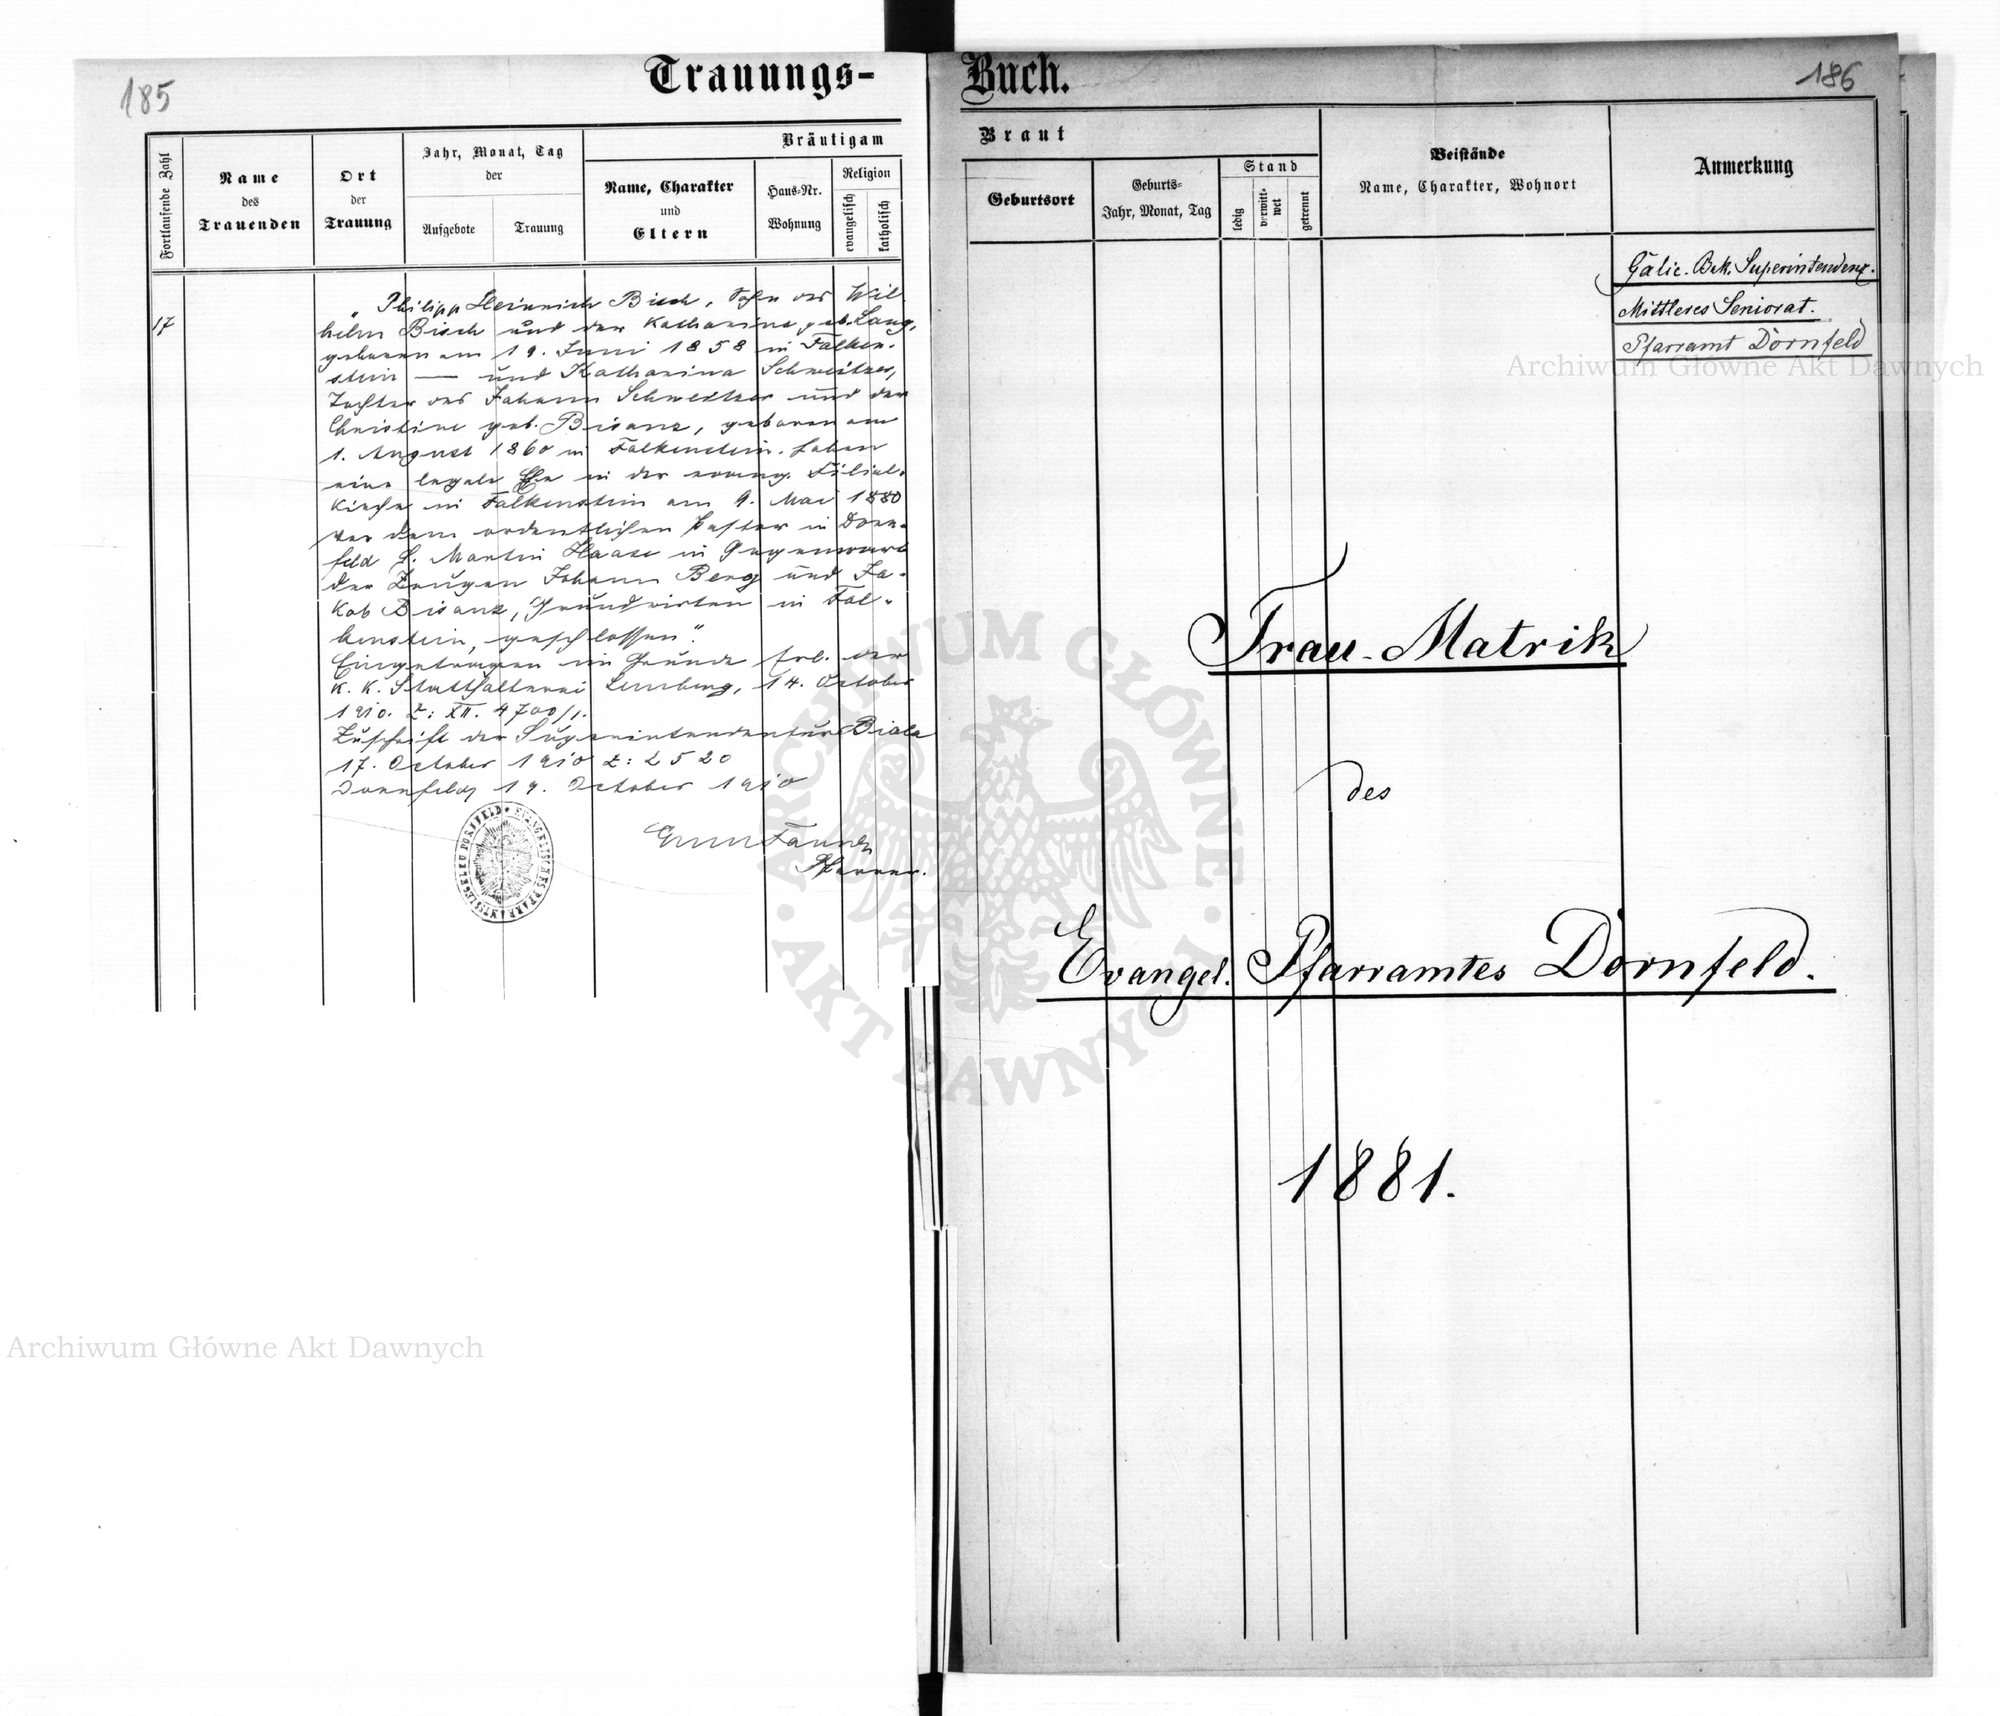 185
Trauungs-
Fortlaufende Zahl
Name
des
Trauenden
Ort
der
Trauung
Jahr, Monat, Tag
der
Aufgebote
Trauung
Bräutigam
Name, Charakter
und
Eltern
Haus-Nr.
Wohnung
Religion
evangelisch
katholisch
17
„Philipp Heinrich Bisch, Sohn des Wil-
helm Bisch und der Katharina geb. Lang,
geboren am 19. Juni 1858 in Falken-
stein — und Katharina Schweitzer,
Tochter des Johann Schweitzer und der
Christine geb. Bisanz, geboren am
1. August 1860 in Falkenstein. haben
eine legale Ehe in der evang. Filial-
Kirche in Falkenstein am 9. Mai 1880
vor dem ordentlichen Pastor in Dorn-
feld Martin Haase in Gegenwart
der Zeugen Johann Berg und Ja-
kob Bisanz, Grundwirten in Fal-
kenstein, geschlossen".
Eingetragen im Grunde Erl. der
K. K. Statthalterei Lemberg, 14. October
1910. Z: XII. 4700/1.
Zuschrift der Superintendentur Biala
17. October 1910 Z: 2520
Dornfeld 19. October 1910
Pfarrer.
EVANGELISCHES PFARRAMTSSIEGEL ZU DORNFELD
186
Buch.
Braut
Geburtsort
Geburts-
Jahr, Monat, Tag
Stand
ledig
verwit-
wet
getrennt
Beistände
Name, Charakter, Wohnort
Anmerkung
Galic. Bek. Superintendenz.
Mittleres Seniorat.
Pfarramt Dornfeld
Trau-Matrik
des
Evangel. Pfarramtes Dornfeld.
1881.
Archiwum Główne Akt Dawnych
ARCHIWUM GŁÓWNE · AKT DAWNYCH ·
Archiwum Główne Akt Dawnych